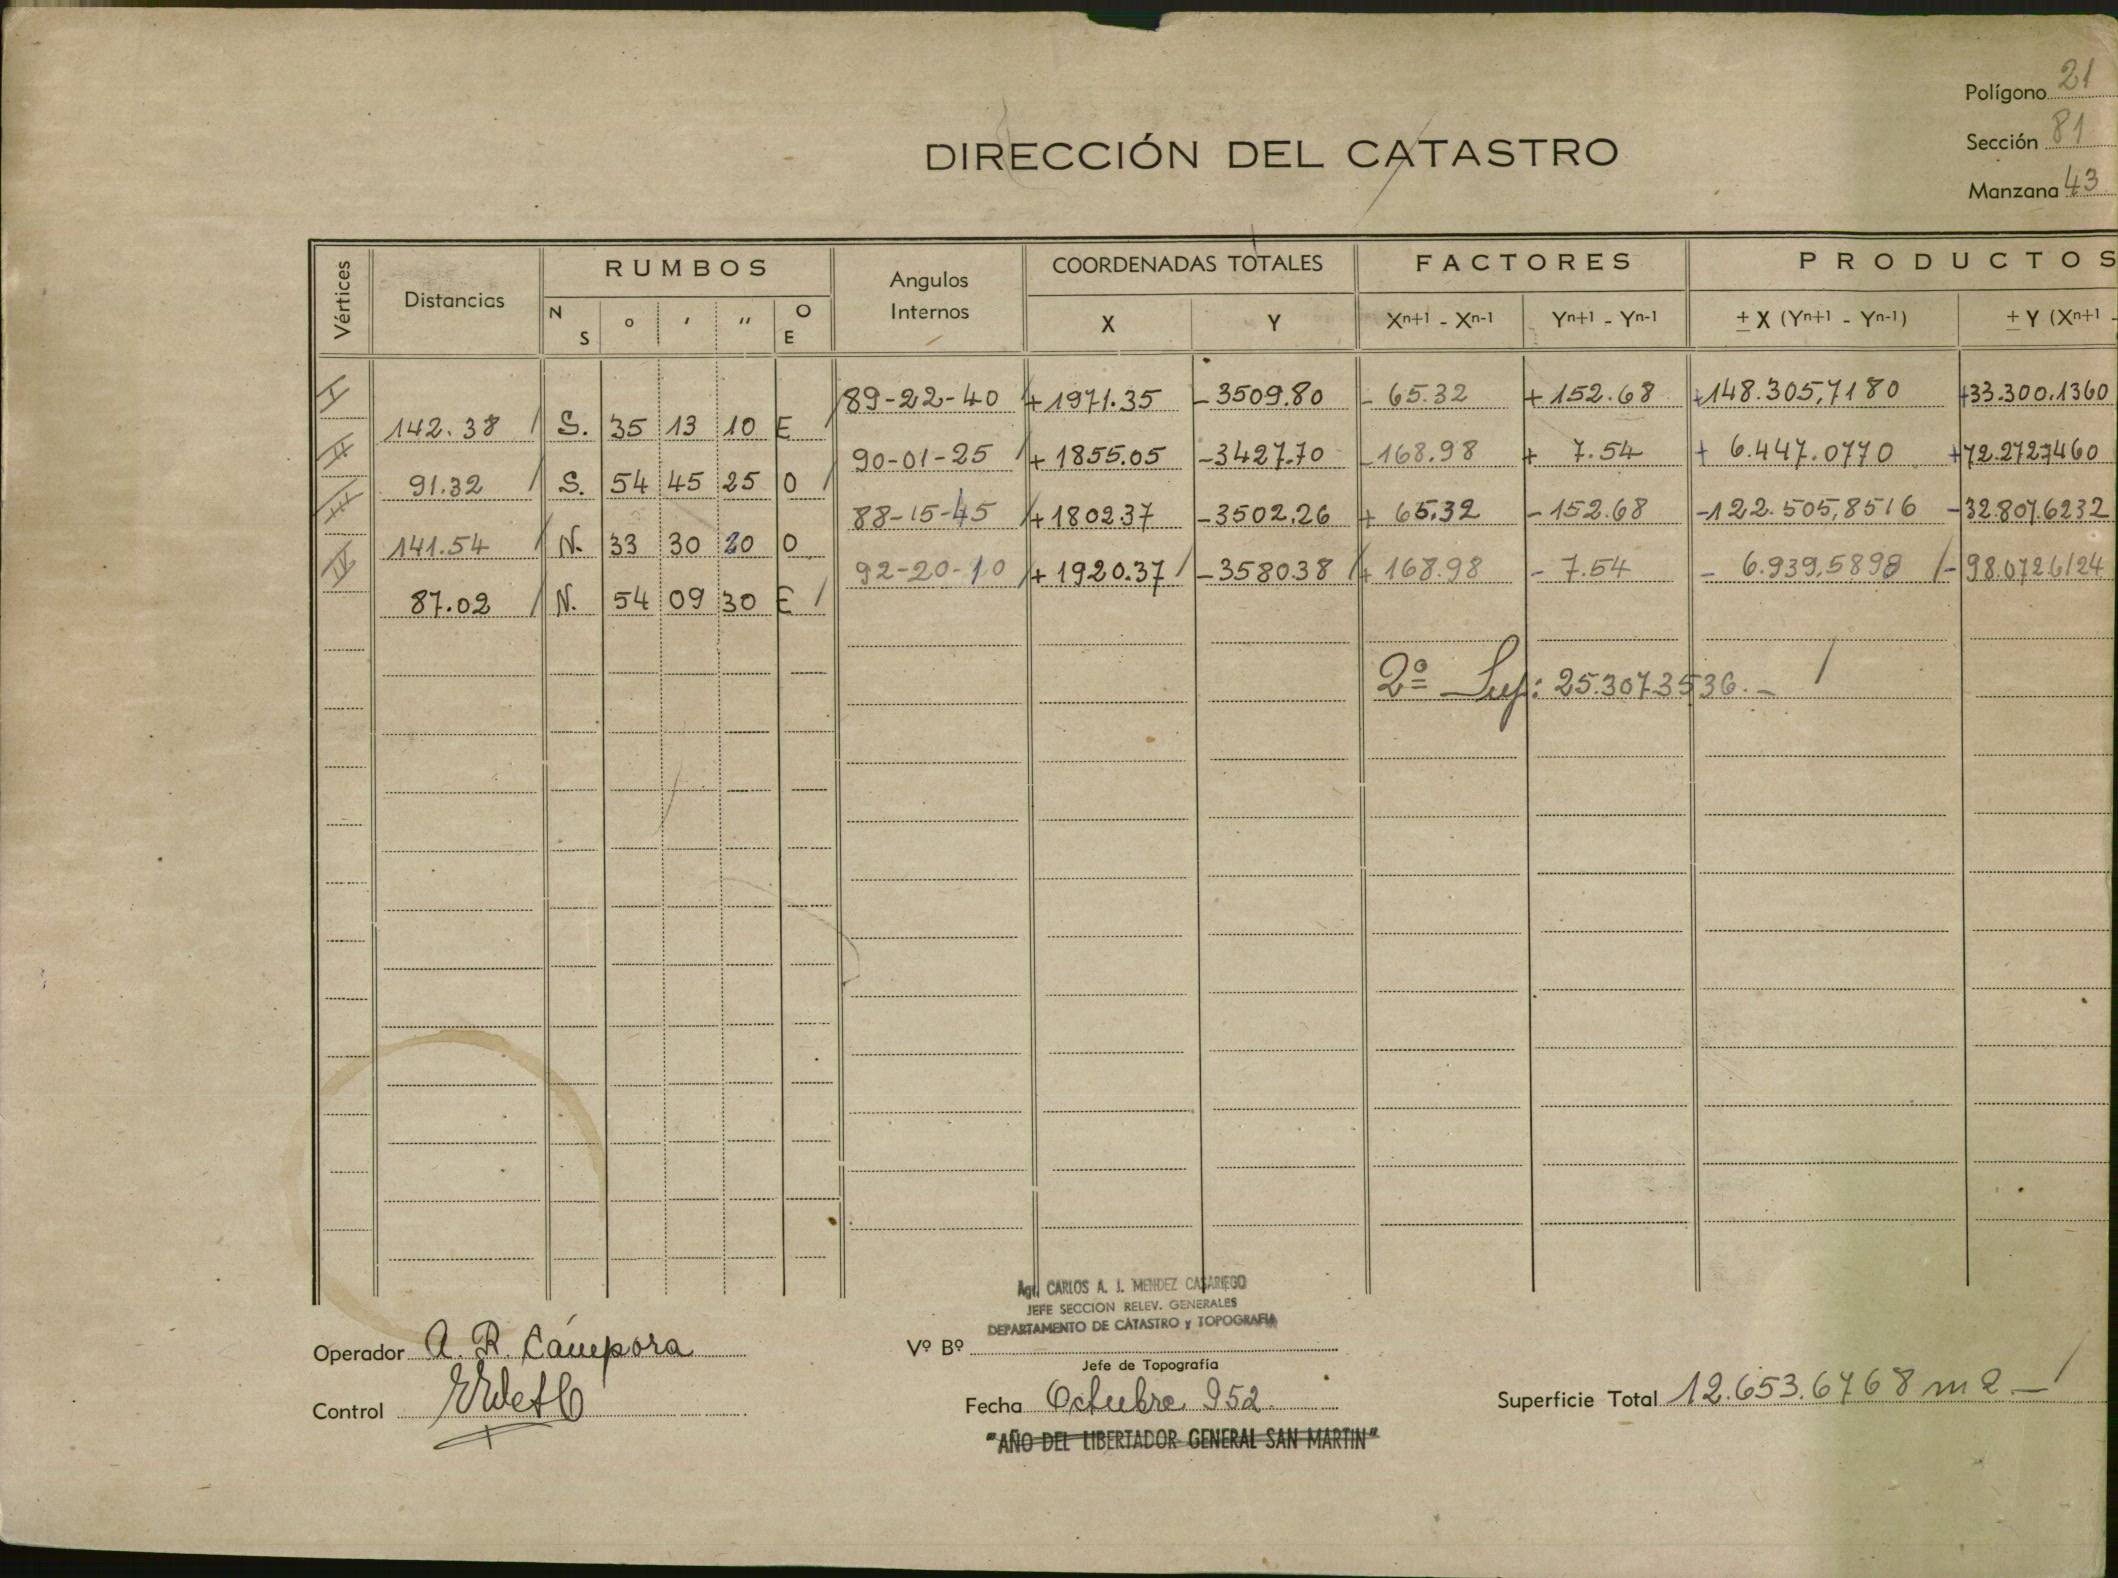 Polígono 21
DIRECCIÓN DEL CATASTRO
Sección 81
Manzana 43
Vértices
Distancias
RUMBOS
N S
° ' "
O E
Angulos Internos
COORDENADAS TOTALES
X Y
FACTORES
Xn+1 - Xn-1 Yn+1 - Yn-1
PRODUCTOS
± X (Yn+1 - Yn-1) ± Y (Xn+1 -
I 89-22-40 + 1971.35 - 3509.80 - 65.32 + 152.68 +148.305,7180 +33.300.1360
142.38 S. 35 13 10 E
II 90-01-25 + 1855.05 -3427.70 -168.98 + 7.54 + 6.447.0770 +72.2727460
91.32 S. 54 45 25 O
III 88-15-45 +1802.37 -3502.26 + 65.32 -152.68 -122.505,8516 -32.807.6232
141.54 N. 33 30 20 O
IV 92-20-10 + 1920.37 -3580.38 + 168.98 - 7.54 - 6.939,5898 -98.0726124
87.02 N. 54 09 30 E
2º Sup: 25.3073536.-
Agr. CARLOS A. J. MENDEZ CASARIEGO
JEFE SECCION RELEV. GENERALES
DEPARTAMENTO DE CATASTRO y TOPOGRAFIA
Operador A. R. Cámpora
Vº Bº
Jefe de Topografía
Control
Fecha Octubre 952
Superficie Total 12.653.6768 m2-
"AÑO DEL LIBERTADOR GENERAL SAN MARTIN"